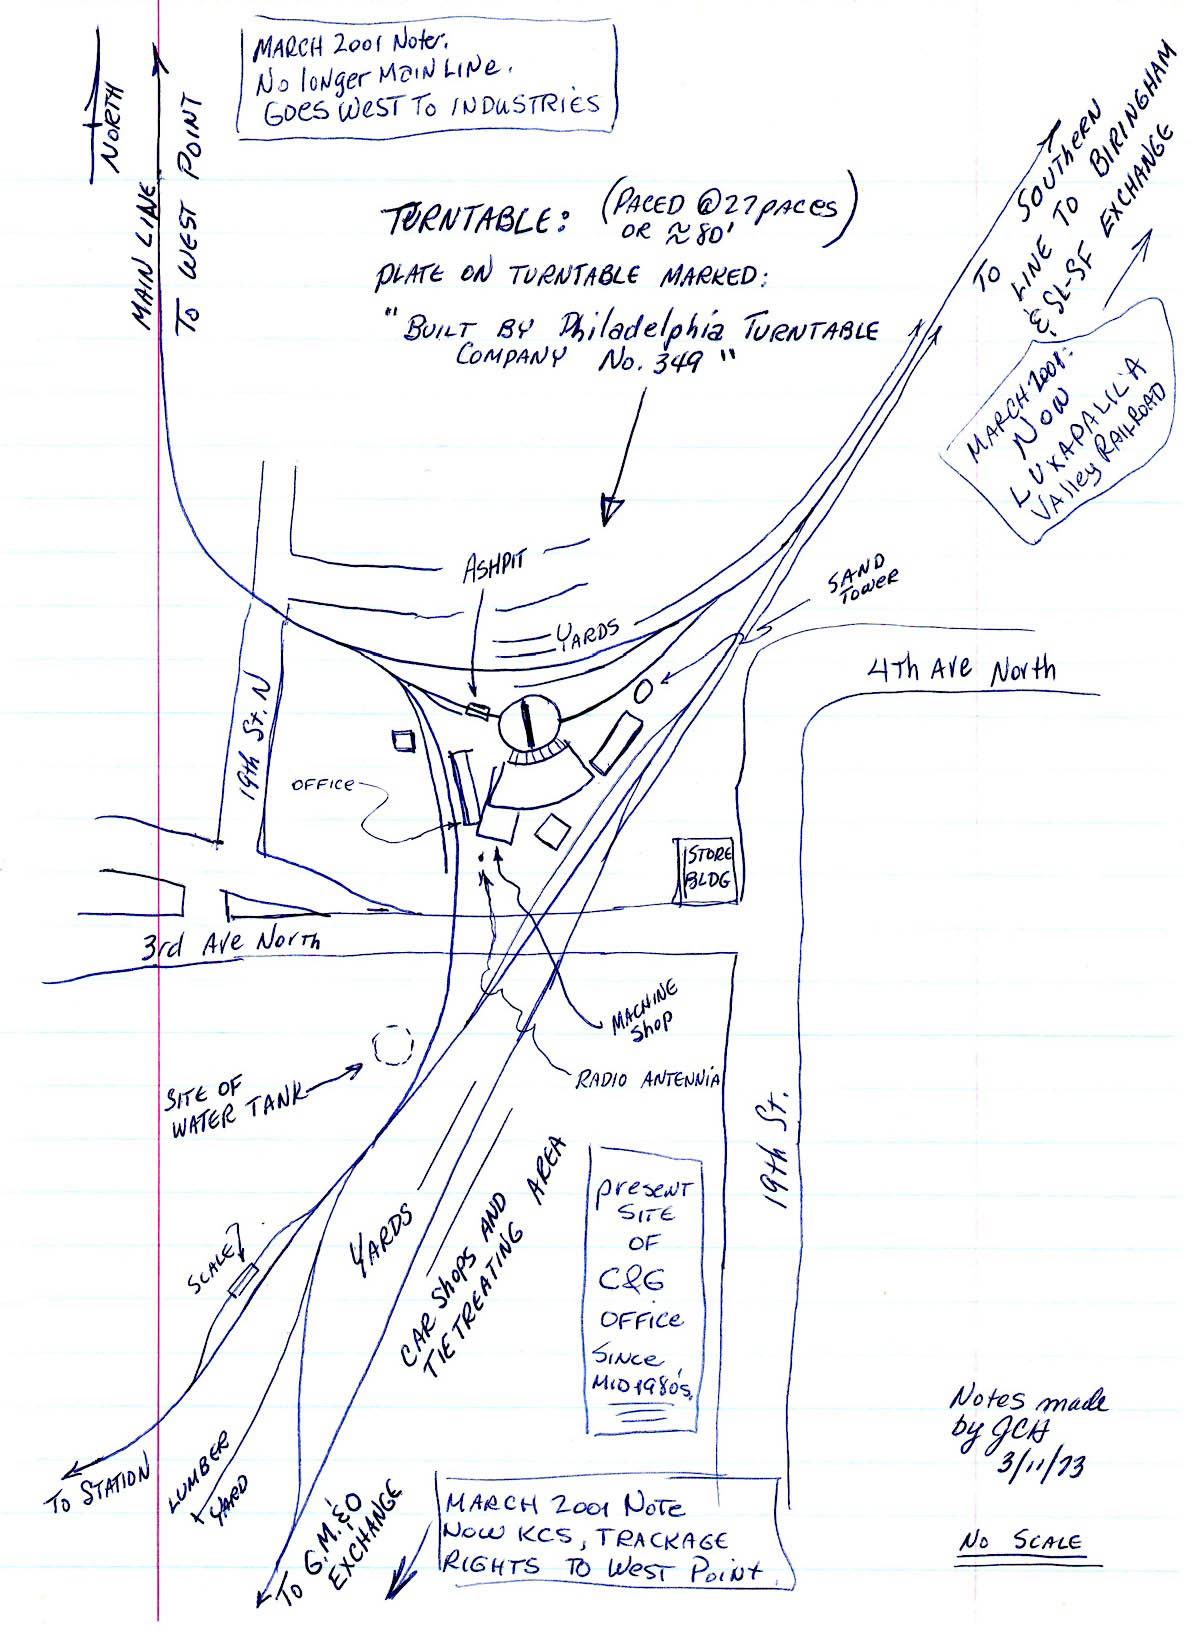 MARCH 2001 Note:
No longer MAIN LINE.
GOES WEST TO INDUSTRIES
NORTH
MAIN LINE
TO WEST POINT
TURNTABLE: (PACED @ 27 PACES
OR ≈ 80')
PLATE ON TURNTABLE MARKED:
"BUILT BY Philadelphia TURNTABLE
COMPANY No. 349"
TO SOUTHERN
LINE TO BIRINGHAM
& SL-SF EXCHANGE
MARCH 2001:
NOW
LUXAPALILA
VAlley RAILROAD
ASHPIT
SAND
TOWER
YARDS
4Th Ave North
19th St. N
OFFICE
STORE
BLDG
3rd Ave North
MACHINE
Shop
RADIO ANTENNIA
SITE OF
WATER TANK
19th St.
YARDS
CAR Shops AND
TIE TREATING AREA
SCALE
present
SITE
OF
C&G
OFFICE
SINCE
MID 1980's.
TO STATION
LUMBER
YARD
TO G.M.&O
EXCHANGE
MARCH 2001 NOTE
NOW KCS, TRACKAGE
RIGHTS TO WEST POINT.
Notes made
by JCH
3/11/73
NO SCALE